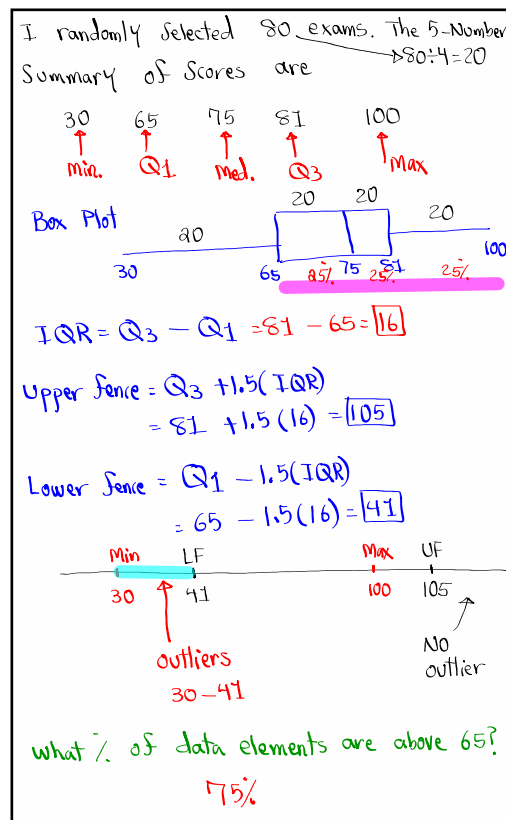 I randomly selected 80 exams. The 5-Number
→80÷4=20
Summary of Scores are
30 65 75 81 100
min. Q1 Med. Q3 Max
20 20
Box Plot 20 20
30 65 75 81 100
25% 25% 25%
IQR = Q3 - Q1 = 81 - 65 = 16
Upper fence = Q3 + 1.5(IQR)
= 81 + 1.5(16) = 105
Lower fence = Q1 - 1.5(IQR)
= 65 - 1.5(16) = 41
Min LF Max UF
30 41 100 105
outliers No
30-41 outlier
What % of data elements are above 65?
75%